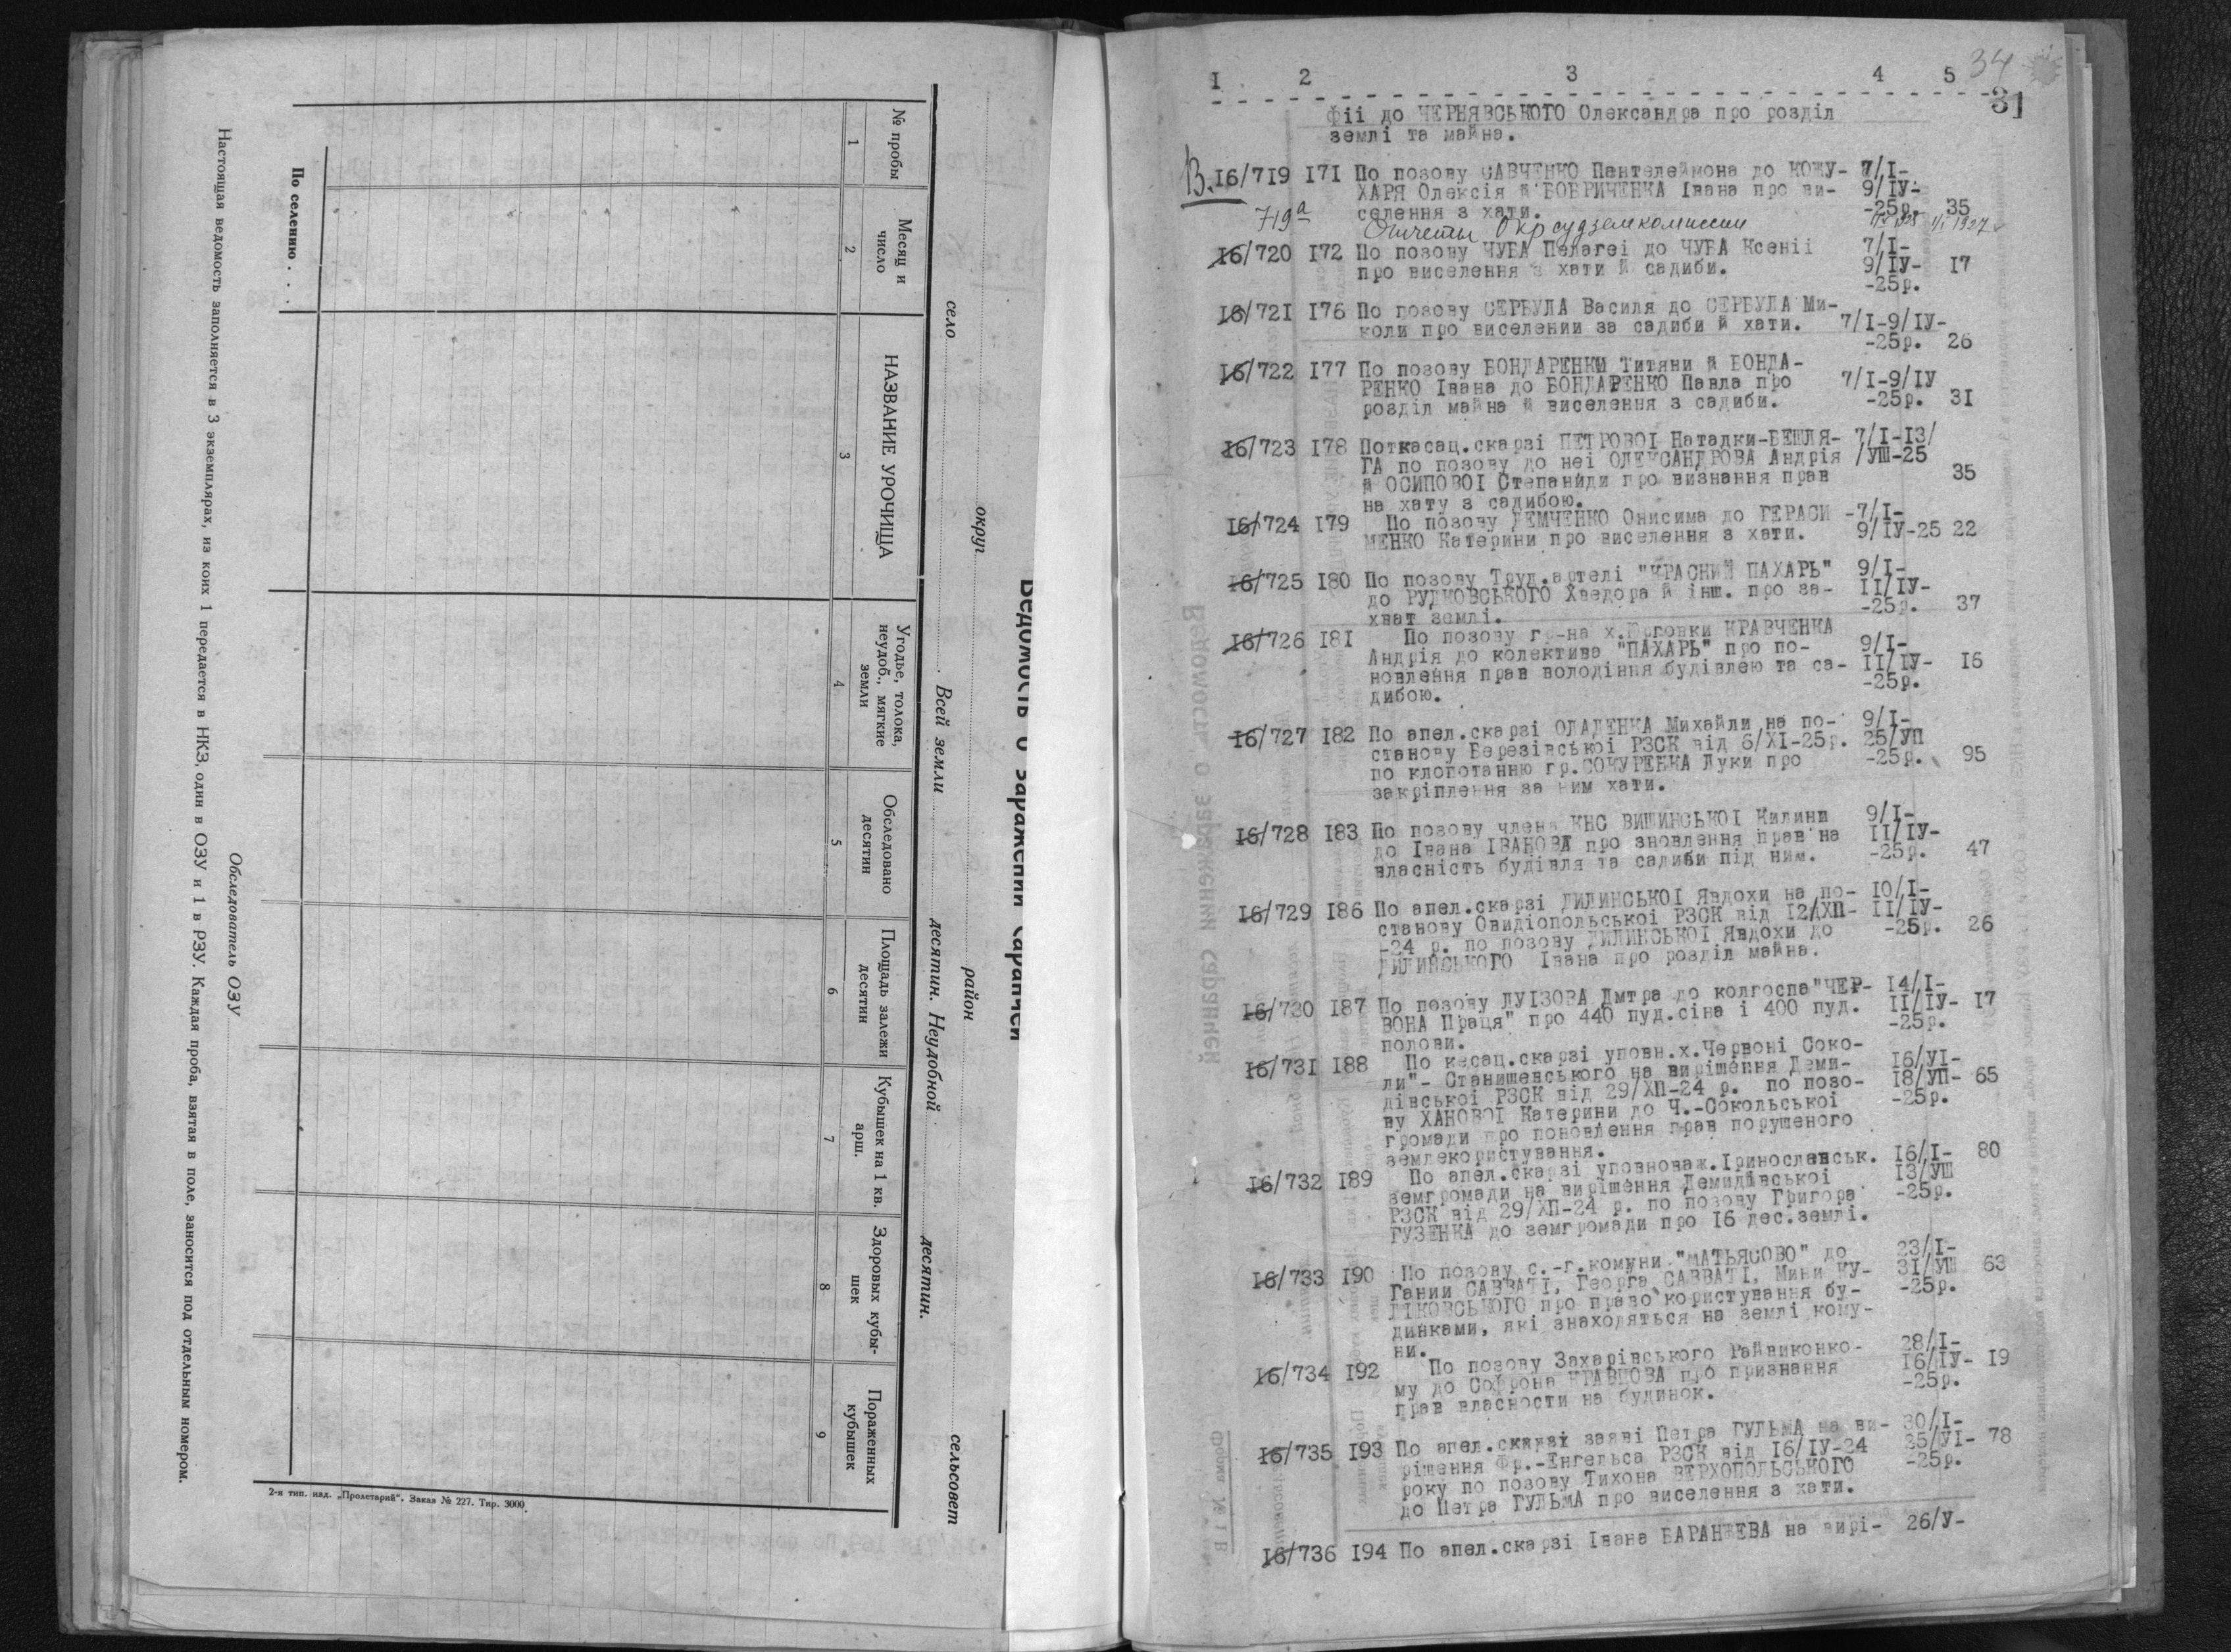 Ведомость о заражении саранчей
округ район сельсовет
село Всей земли десятин. Неудобной десятин.
№ пробы
Месяц и число
НАЗВАНИЕ УРОЧИЩА
Угодье, толока, неудоб., мягкие земли
Обследовано десятин
Площадь залежи десятин
Кубышек на 1 кв. арш.
Здоровых кубы-шек
Пораженных кубышек
1 2 3 4 5 6 7 8 9
По селению . . .
Обследователь ОЗУ
Настоящая ведомость заполняется в 3 экземплярах, из коих 1 передается в НКЗ, один в ОЗУ и 1 в РЗУ. Каждая проба, взятая в поле, заносится под отдельным номером.
2-я тип. изд. „Пролетарий“. Заказ № 227. Тир. 3000
34
I 2 3 4 5
31
фіі до ЧЕРНЯВСЬКОГО Олександра про розділ
землі та майна.
В. I6/7I9 I7I По позову САВЧЕНКО Пантелеймона до КОЖУ- 7/I-
ХАРЯ Олексія й БОБРИЧЕНКА Івана про ви- 9/ІУ-
селення з хати. -25р. 35
719а Отчеты Окрсудземкомиссии 1927
I6/720 I72 По позову ЧУБА Пелагеі до ЧУБА Ксеніі 7/I-
про виселення з хати й садиби. 9/ІУ- I7
-25р.
I6/72I I76 По позову СЕРБУЛА Василя до СЕРБУЛА Ми-
коли про виселении за садиби й хати. 7/I-9/ІУ-
-25р. 26
I6/722 I77 По позову БОНДАРЕНКИ Титяни й БОНДА-
РЕНКО Івана до БОНДАРЕНКО Павла про 7/I-9/ІУ
розділ майна й виселення з садиби. -25р. 3I
I6/723 I78 Поткасац.скарзі ПЕТРОВОІ Натадки-БЕШЛЯ- 7/I-I3/
ГА по позову до неі ОЛЕКСАНДРОВА Андрія /УШ-25
й ОСИПОВОІ Степаниди про визнання прав 35
на хату з садибою.
I6/724 I79 По позову ДЕМЧЕНКО Онисима до ГЕРАСИ -7/I-
МЕНКО Катерини про виселення з хати. 9/ІУ-25 22
I6/725 I80 По позову Труд.артелі "КРАСНИЙ ПАХАРЬ" 9/I-
до РУДКОВСЬКОГО Хведора й інш. про за- II/ІУ-
хват землі. -25р. 37
I6/726 I8I По позову гр-на х.Юрговки КРАВЧЕНКА
Андрія до колектива "ПАХАРЬ" про по- 9/I-
новлення прав володіння будівлею та са- II/ІУ- I6
дибою. -25р.
I6/727 I82 По апел.скарзі ОЛАДЕНКА Михайли на по- 9/I-
станову Березівськоі РЗСК від 6/ХІ-25р. 25/УП
по клопотанню гр.СОКУРЕНКА Луки про -25р. 95
закріплення за ним хати.
I6/728 I83 По позову члена КНС ВИШИНСЬКОІ Килини 9/I-
до Івана ІВАНОВА про зновлення прав на II/ІУ-
власність будівля та садиби під ним. -25р. 47
I6/729 I86 По апел.скарзі ДИЛИНСЬКОІ Явдохи на по- I0/I-
станову Овидіопольськоі РЗСК від I2/ХП- II/ІУ-
-24 р. по позову ДИЛИНСЬКОІ Явдохи до -25р. 26
ДИЛИНСЬКОГО Івана про розділ майна.
I6/730 I87 По позову ЛУІЗОВА Дмтра до колгоспа"ЧЕР- I4/I-
ВОНА Праця" про 440 пуд.сіна і 400 пуд. II/ІУ- I7
полови. -25р.
I6/73I I88 По кесац.скарзі уповн.х.Червоні Соко-
ли"- Станишевського на вирішення Деми- I6/УІ-
дівськоі РЗСК від 29/ХП-24 р. по позо- I8/УП- 65
ву ХАНОВОІ Катерини до Ч.-Сокольськоі -25р.
громади про поновлення прав порушеного
землекористування.
I6/732 I89 По апел.скарзі уповноваж.Іринославськ. I6/I- 80
земгромади на вирішення Демидівськоі I3/УШ
РЗСК від 29/ХП-24 р. по позову Григора -25р.
ГУЗЕНКА до земгромади про I6 дес.землі.
I6/733 I90 По позову с.-г.комуни "МАТЬЯСОВО" до 23/I-
Гании САВВАТІ, Георга САВВАТІ, Мини КУ- 3I/УШ 63
ЛІКОВСЬКОГО про право користування бу- -25р.
динками, які знаходяться на землі кому-
ни.
I6/734 I92 По позову Захарівського Райвиконко- 28/I-
му до Софрона КРАВЦОВА про признання I6/ІУ- I9
прав власности на будинок. -25р.
I6/735 I93 По апел.скарзі заяві Петра ГУЛЬМА на ви- 30/I-
рішення Фр.-Енгельса РЗСК від I6/ІУ-24 25/УІ- 78
року по позову Тихона ВЕРХОПОЛЬСЬКОГО -25р.
до Петра ГУЛЬМА про виселення з хати.
I6/736 I94 По апел.скарзі Івана БАРАНЕЕВА на вирі- 26/У-